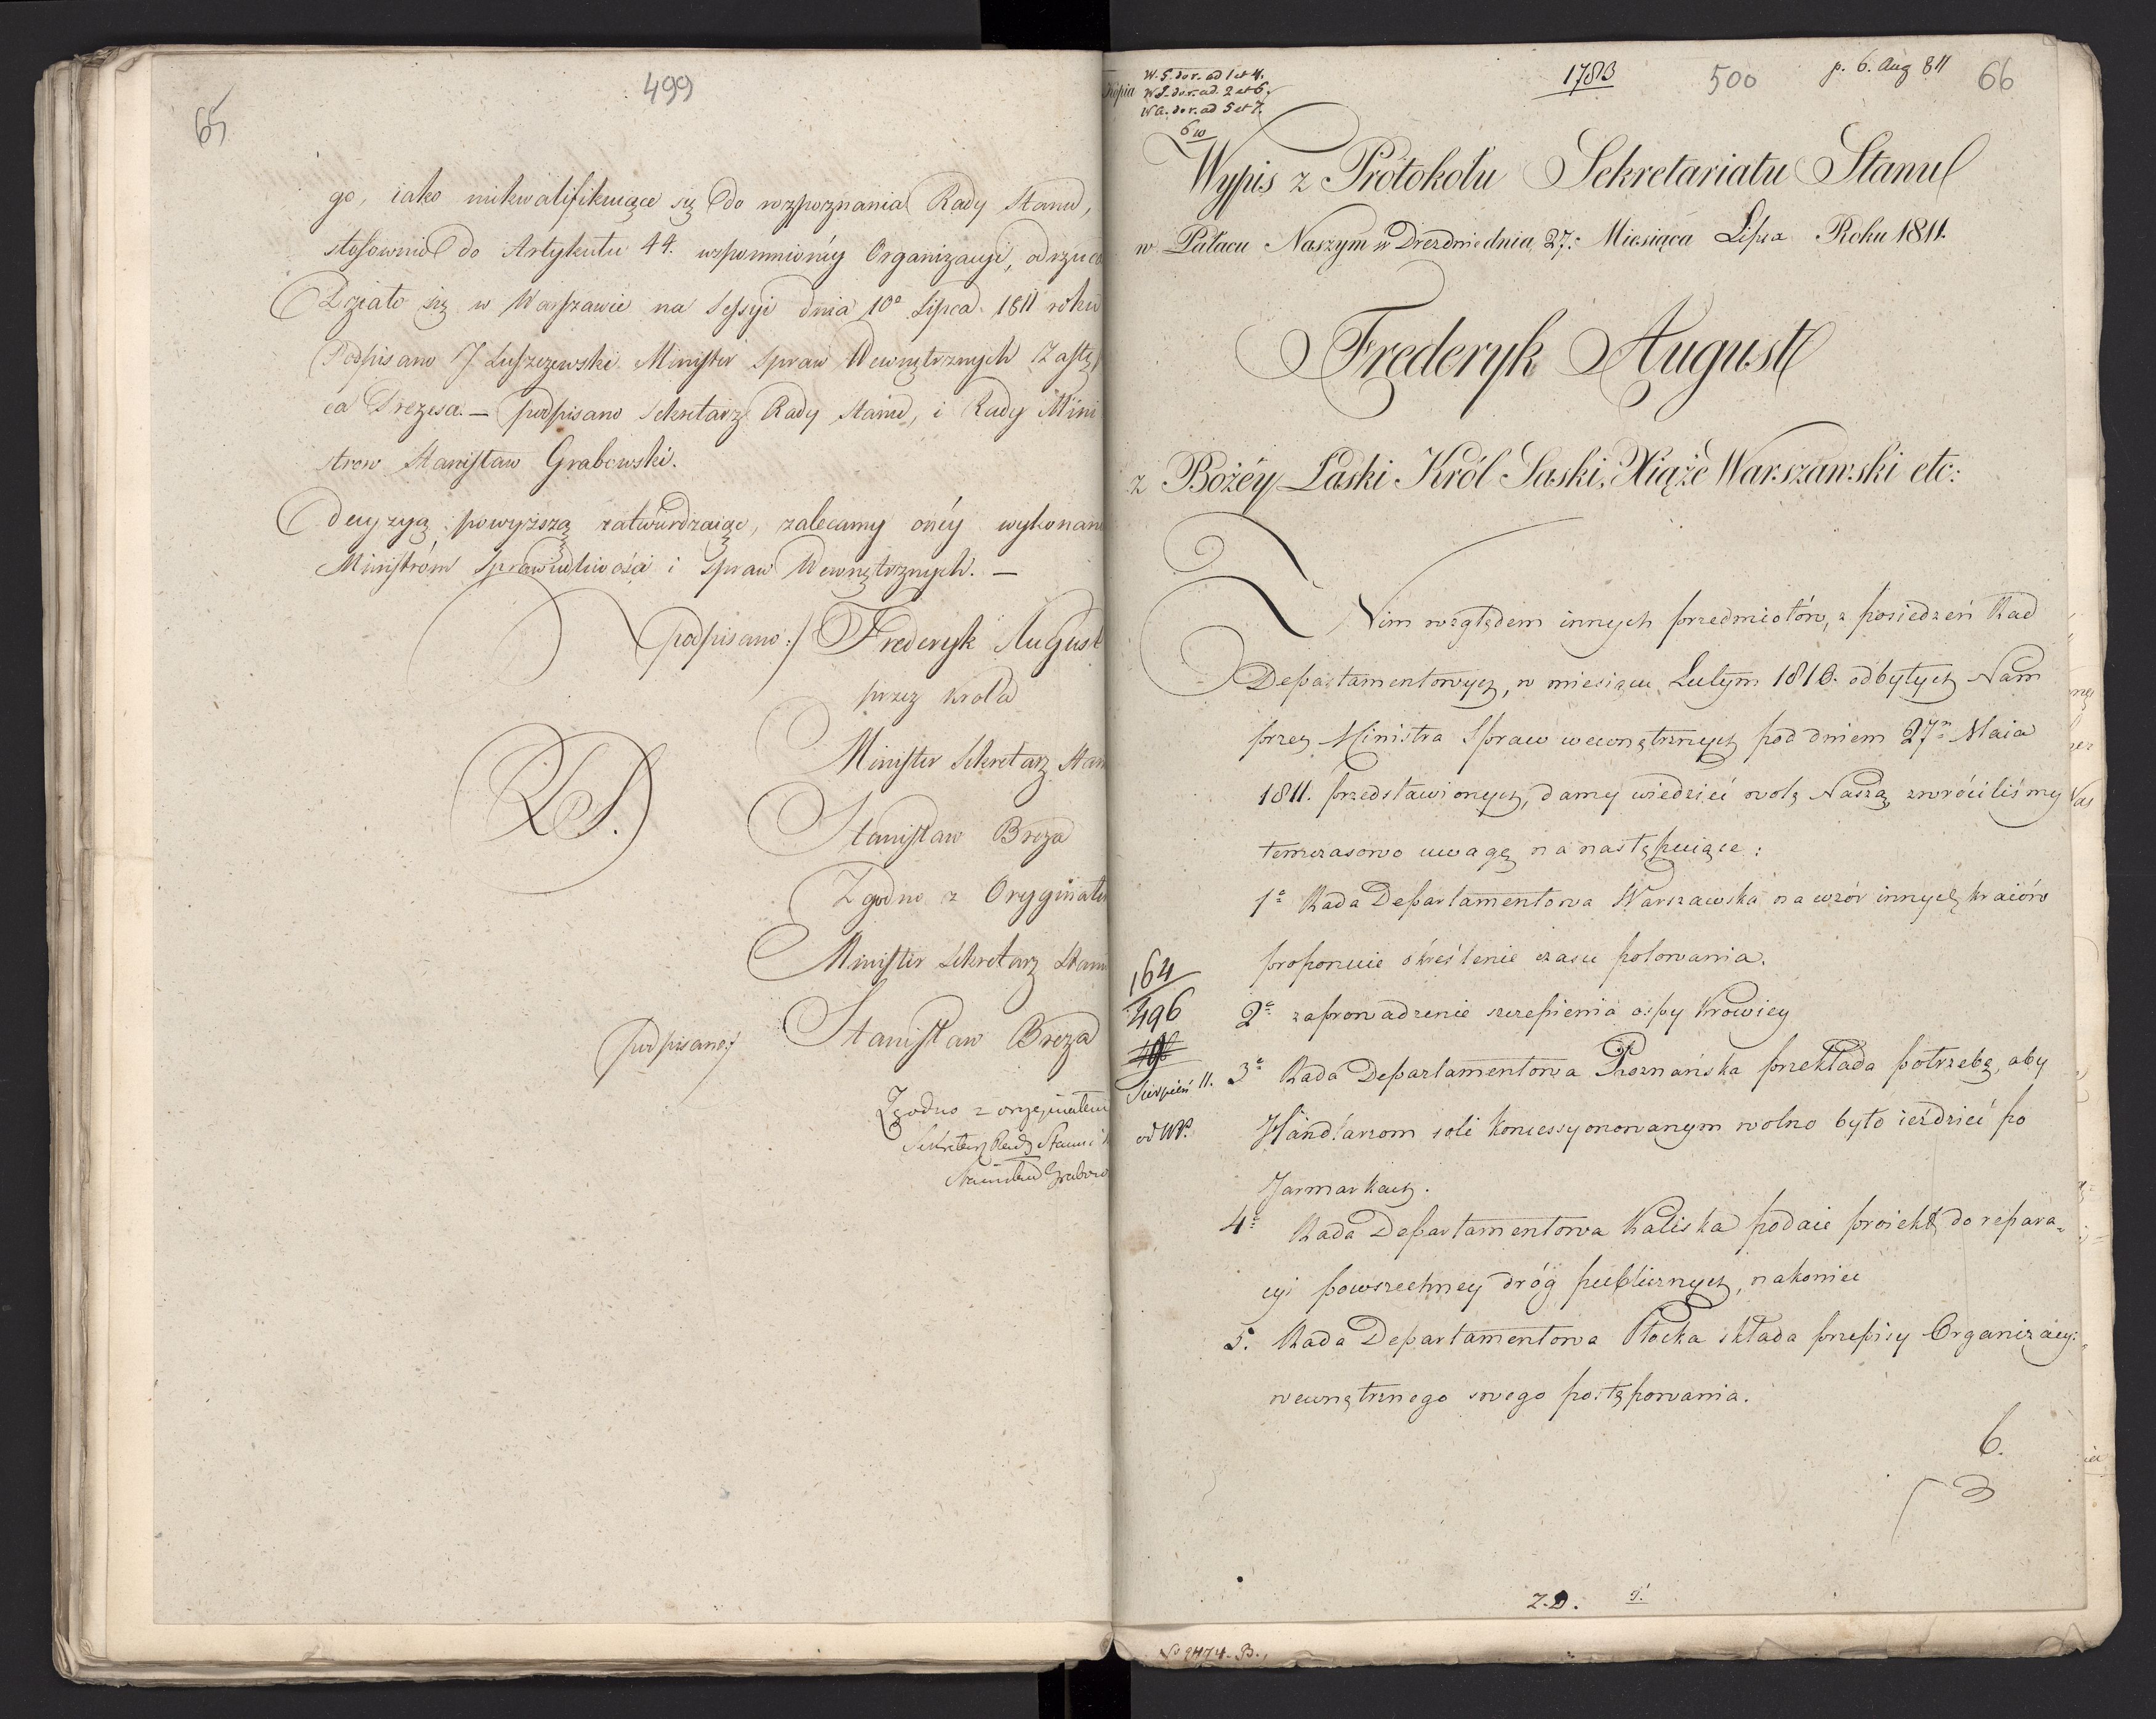 499
65
go, iako niekwalifikuiące się do rozpoznania Rady Stanu,
stosownie do Artykułu 44. wspomnionéy Organizacyi, odrzuca
Działo się w Warszawie na Sessyi dnia 10º Lipca 1811 roku
Podpisano J Łuszczewski Minister Spraw Wewnętrznych Zastęp
ca Prezesa. — podpisano Sekretarz Rady Stanu, i Rady Mini
strow Stanisław Grabowski.
decyzyą powyższą zatwierdzaiąc, zalecamy onéy wykonani
Ministróm Sprawiedliwości i Spraw Wewnętrznych. —
podpisano:/ Frederyk August
przez Krola
Minister Sekretarz Stan
L.S.
Stanisław Breza
Zgodno z Oryginałe
Minister Sekretarz Stanu
podpisano:/ Stanisław Breza
Zgodno z oryginałem
Sekretarz Rady Stanu i
Stanisław Grabow
W.S. dor. ad 1 et 4.
Kopia W.I. dor. ad. 2 et 6.
W.A. dor. ad 5 et 7.
6 w
1783
500
p. 6. Aug 811
66
Wypis z Protokołu Sekretariatu Stanu
w Pałacu Naszym w Dreznie dnia 27. Miesiąca Lipca Roku 1811.
Frederyk August
z Bożéy Łaski Król Saski, Xiąże Warszawski etc:
Nim względem innych przedmiotów, z posiedzeń Rad
Departamentowych, w miesiącu Lutym 1810. odbytych Nam
przez Ministra Spraw wewnętrznych pod dniem 27m Maia
1811. przedstawionych, damy wiedzieć wolę Naszą, zwróciliśmy
temczasowo uwagę na następuiące:
1e Rada Departamentowa Warszawska na wzór innych kraiów
proponuie określenie czasu polowania.
164
496
2e zaprowadzenie szczepienia ospy Krowiey
Sierpień 11.
3e Rada Departamentowa Poznańska przekłada potrzebę, aby
od WP.
Handlarzom soli koncessyonowanym wolno było ieździć po
Jarmarkach.
4e Rada Departamentowa Kaliska podaie proiekt do repara-
cyi powszechney dróg publicznych, nakoniec
5. Rada Departamentowa Płocka składa przepisy Organizacyi
wewnętrznego swego postępowania.
6.
Z.D.
No 2474. B.